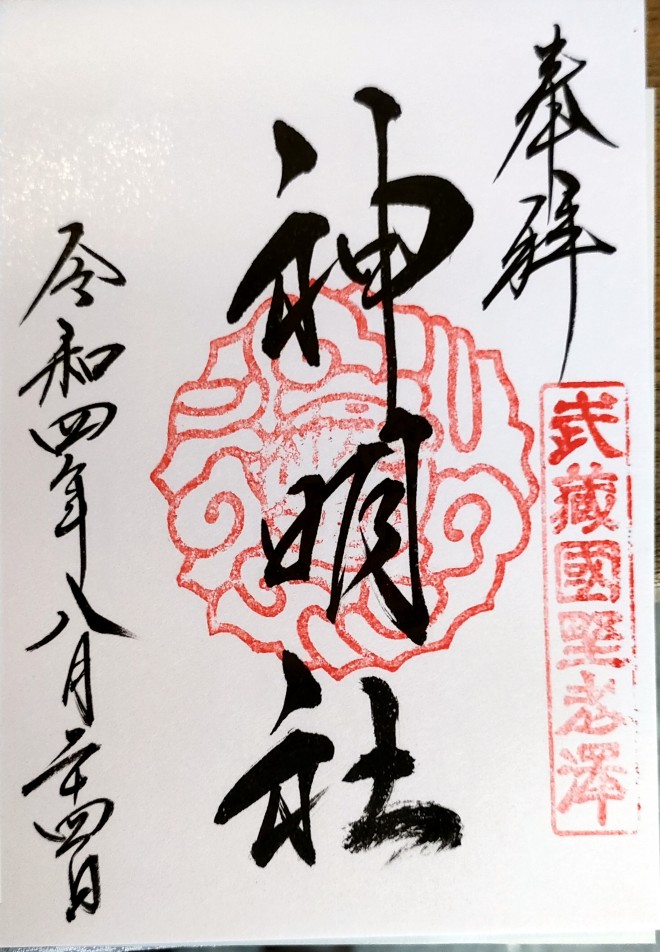 奉拝
武藏國野老澤
神明社
令和四年八月二十四日